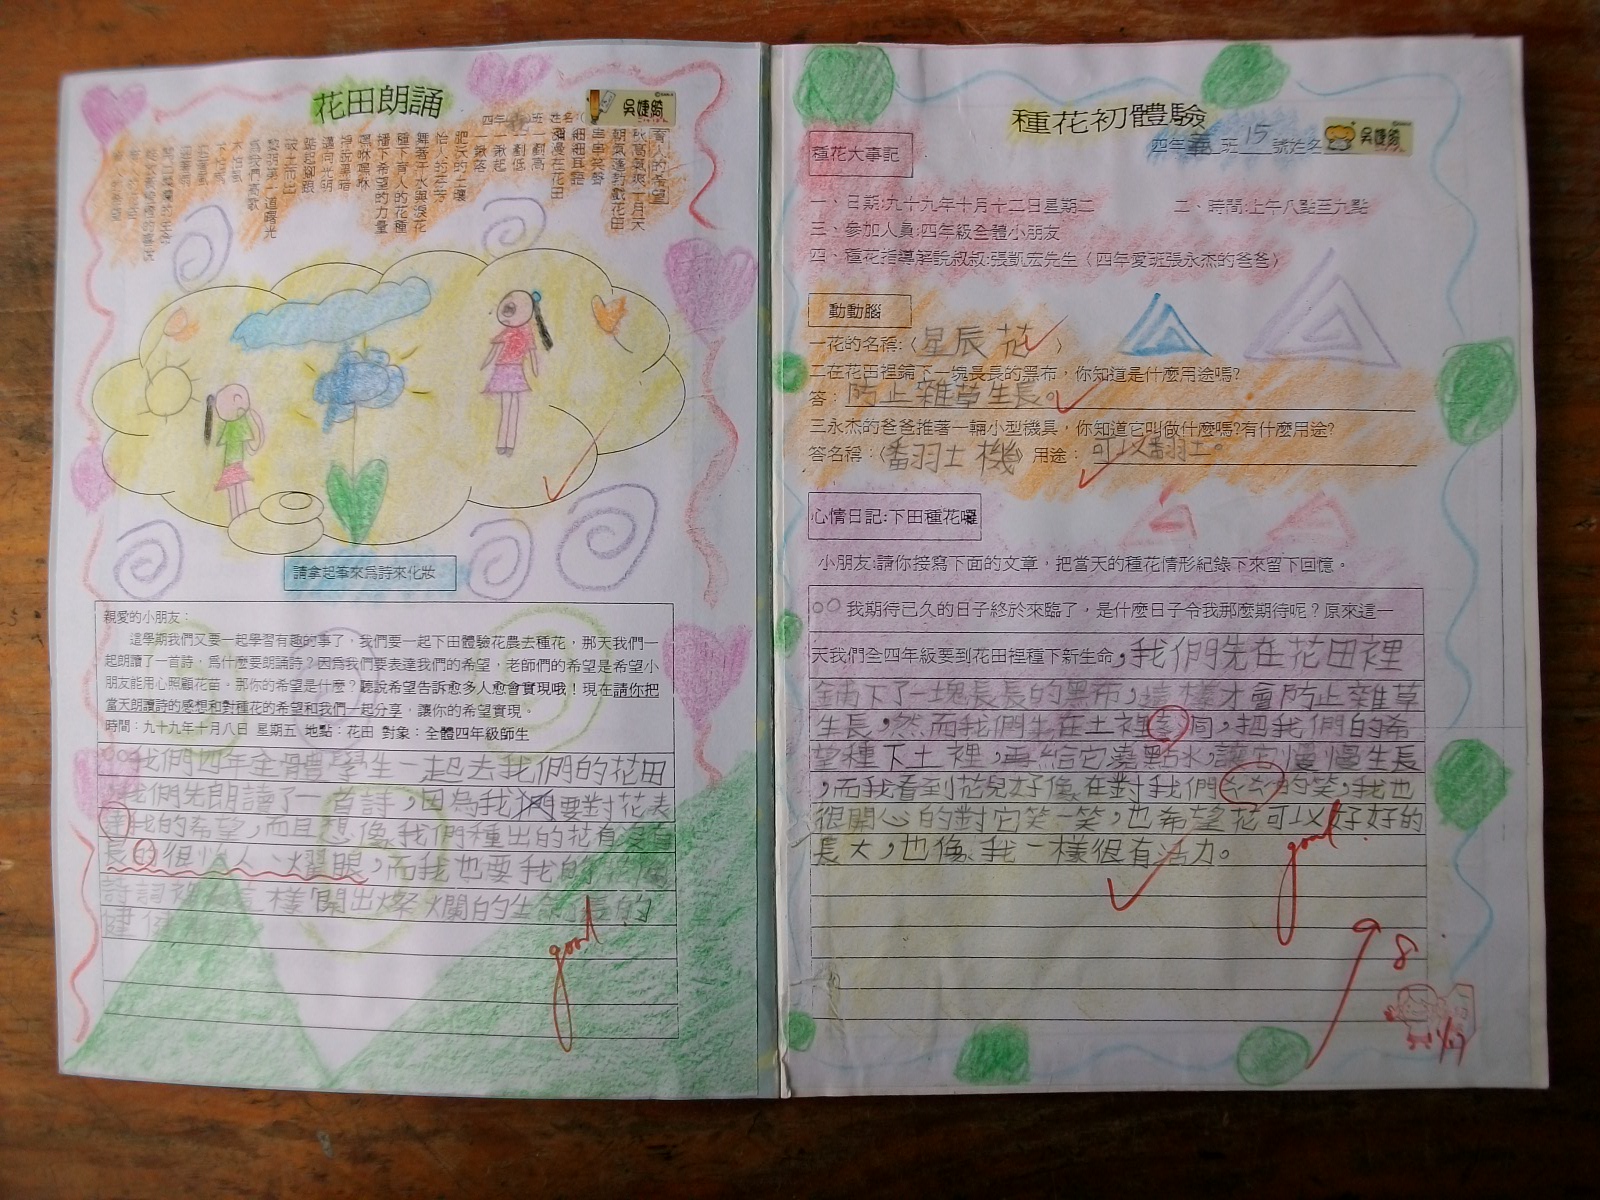 花田朗誦
吳婕綺
四年 班 姓名:(
育人的希望
秋高氣爽十月天
朝氣蓬勃戲花田
串串笑聲
細細耳語
瀰漫在花田
一劃高
一劃低
一鍬起
一鍬落
肥沃的土壤
怡人的芬芳
舞著汗水與淚花
種下育人的花種
播下希望的力量
嘿咻嘿咻
掙脫黑暗
邁向光明
踮起腳跟
破土而出
黎明第一道曙光
為我們高歌
不怕風
請拿起筆來為詩來化妝
親愛的小朋友:
這學期我們又要一起學習有趣的事了，我們要一起下田體驗花農去種花，那天我們一
起朗讀了一首詩，為什麼要朗誦詩？因為我們要表達我們的希望，老師們的希望是希望小
朋友能用心照顧花苗。那你的希望是什麼？聽說希望告訴愈多人愈會實現哦！現在請你把
當天朗讀詩的感想和對種花的希望和我們一起分享，讓你的希望實現。
時間：九十九年十月八日 星期五 地點：花田 對象：全體四年級師生
我們四年全體學生一起去我們的花田
，我們先朗讀了一首詩，因為我們要對花表
達我的希望，而且想像我們種出的花有沒有
長的很怡人、耀眼，而我也要我的花像
詩詞裡 這樣開出燦爛的生命，長的
健
good
種花初體驗
四年義班15號姓名
吳婕綺
種花大事記
一、日期:九十九年十月十二日星期二 二、時間:上午八點至九點
三、參加人員:四年級全體小朋友
四、種花指導解說叔叔:張凱宏先生〈四年愛班張永杰的爸爸〉
動動腦
一花的名稱:〈星辰花〉
二在花田裡鋪下一塊長長的黑布，你知道是什麼用途嗎?
答：防止雜草生長。
三永杰的爸爸推著一輛小型機具，你知道它叫做什麼嗎?有什麼用途?
答名稱：〈翻土機〉用途：可以翻土。
心情日記:下田種花囉
小朋友:請你接寫下面的文章，把當天的種花情形紀錄下來留下回憶。
我期待已久的日子終於來臨了，是什麼日子令我那麼期待呢？原來這一
天我們全四年級要到花田裡種下新生命，我們先在花田裡
鋪下了一塊長長的黑布，這樣才會防止雜草
生長，然而我們 在土裡 洞，把我們的希
望種下土裡，再給它澆點水，讓它慢慢生長
，而我看到花兒好像在對我們 的笑，我也
很開心的對它笑一笑，也希望花可以好好的
長大，也像我一樣很有活力。
good
98